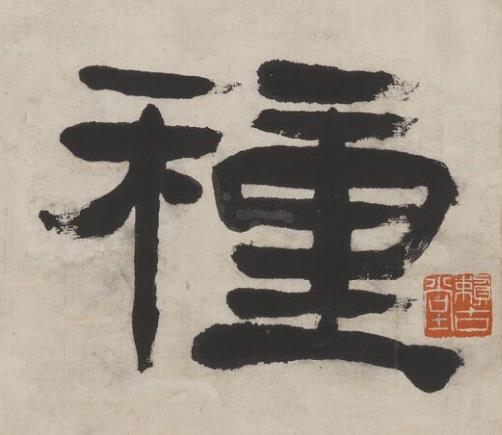 種
賴古堂